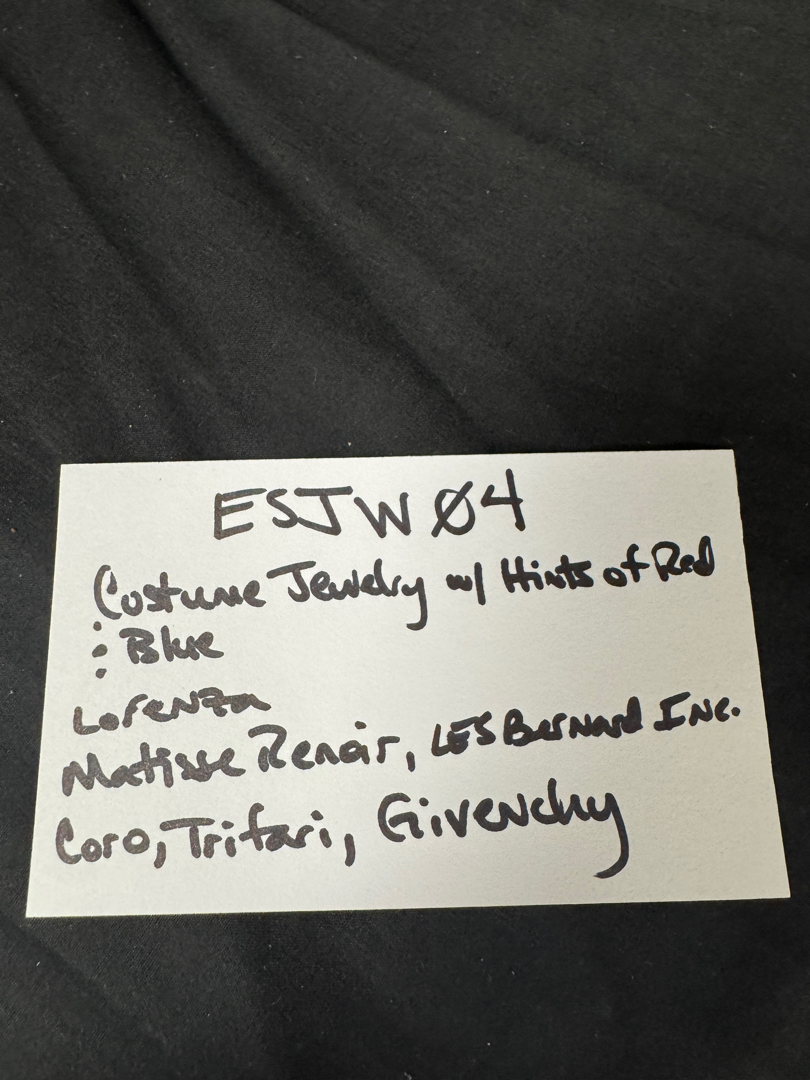 ESJW Ø4
Costume Jewelry w/ Hints of Red
: Blue
Lorenza
Matisse Renoir, LES Bernard Inc.
Coro, Trifari, Givenchy